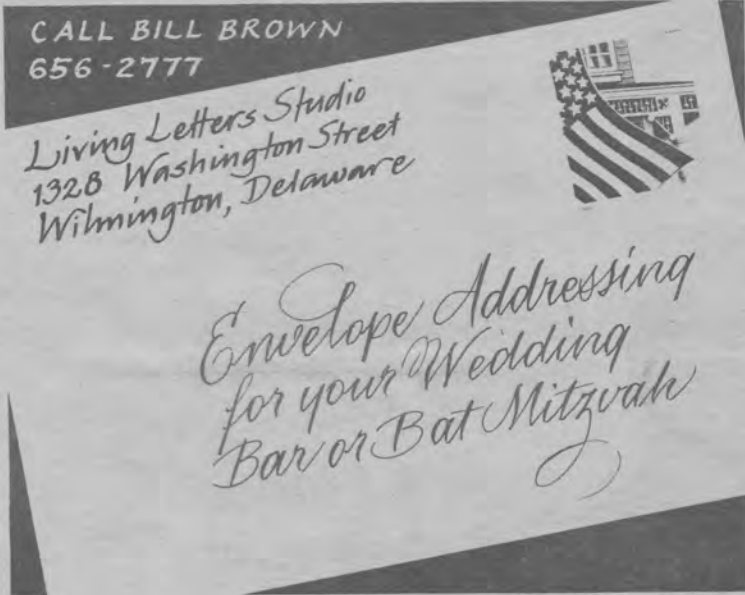 CALL BILL BROWN
656-2777
Living Letters Studio
1328 Washington Street
Wilmington, Delaware
Envelope Addressing
for your Wedding
Bar or Bat Mitzvah